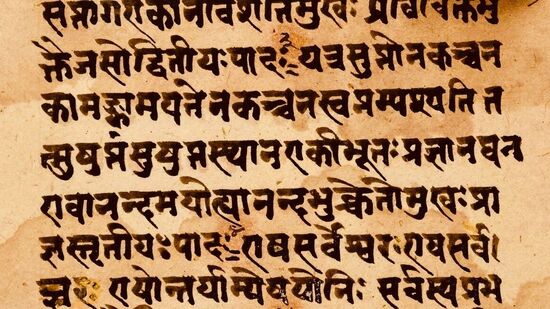 सप्तागएकोनविंशतिमुखः प्रविविक्तभु
क्तैजसोद्वितीयःपादः२ यत्रसुप्तोनकच्चन
कामङ्कामयतेनकच्चनस्वप्नम्पश्यतित
त्सुषुप्तंसुषुप्तस्थानएकीभूतःप्रज्ञानघन
एवानन्दमयोह्यानन्दभुक्चेतोमुखःप्रा
ज्ञस्तृतीयःपादः३एषसर्वेश्वरःएषसर्व
ज्ञः एषोन्तर्याम्येषयोनिः सर्वस्यप्रभ